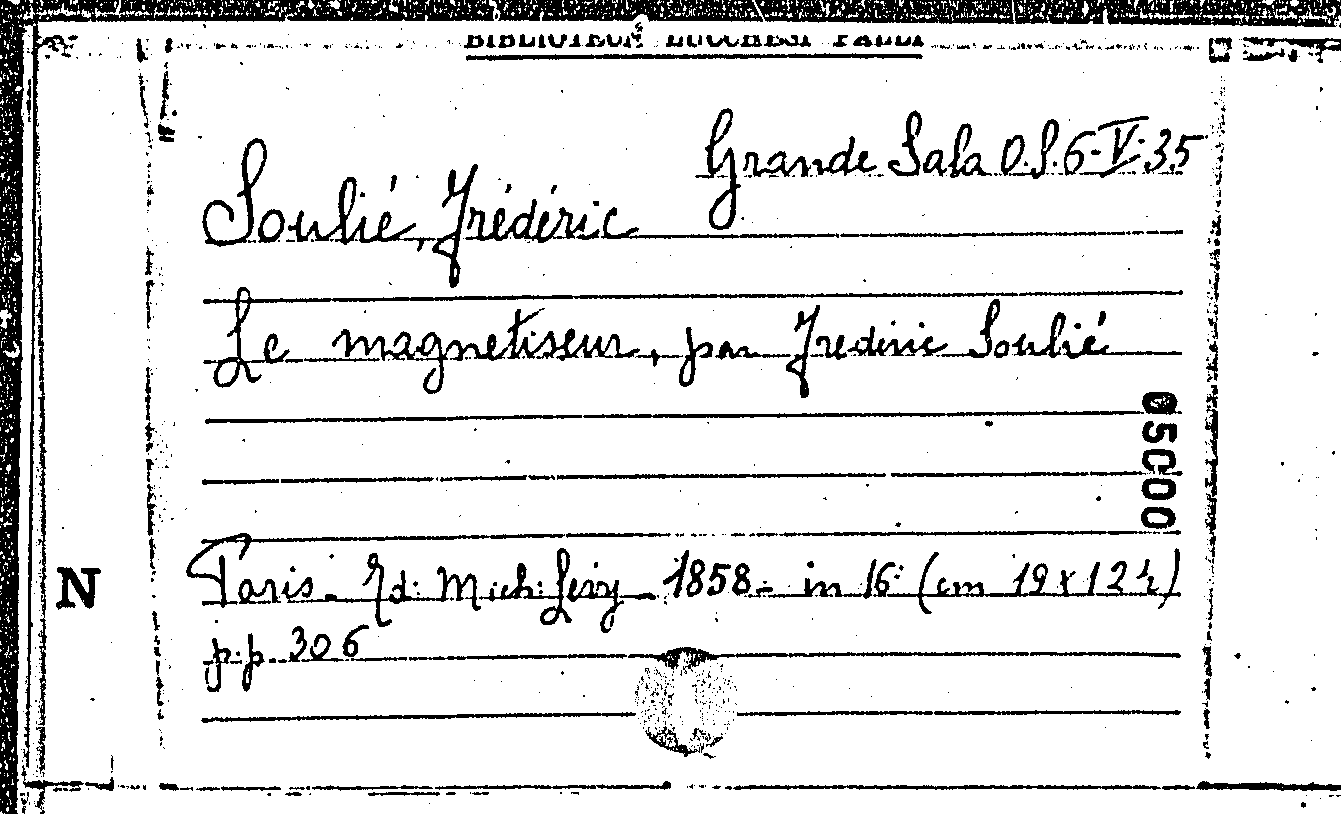 BIBLIOTECA LUCCHESI PALLI
Grande Sala O.S.6-V-35
Soulié, Frédéric
Le magnetiseur, par Frederic Soulié
05C00
Paris - Ed: Mich: Levy - 1858 - in 16° (cm 19x12½)
N
p.p. 306